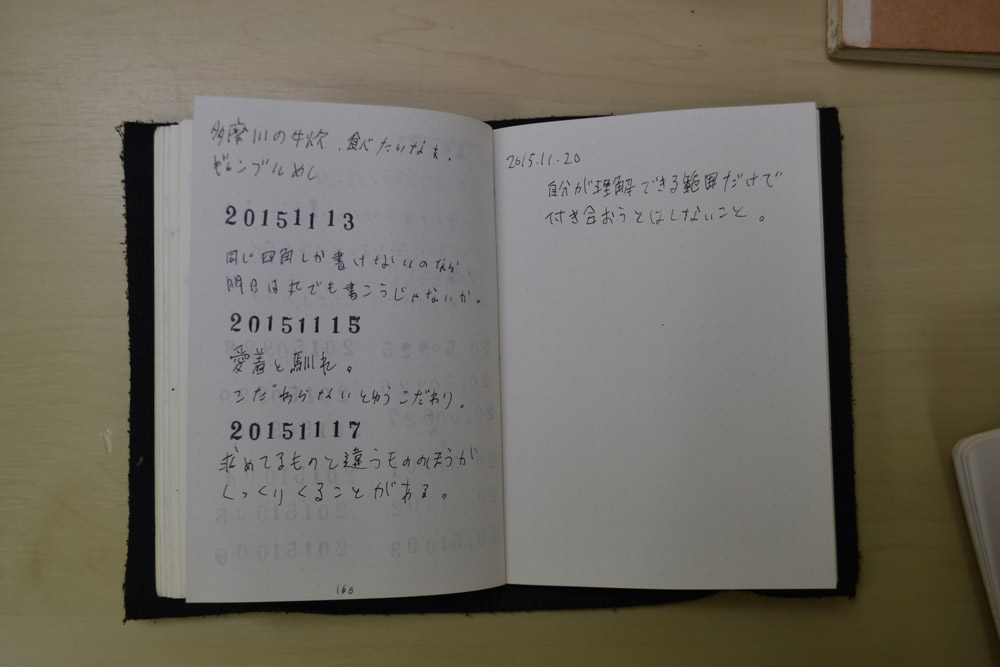 多摩川の牛炊、食べたいなぁ、
ギャンブルめし
20151113
同じ四角しか書けないのなら、
明日は丸でも書こうじゃないか。
20151115
愛着と馴れ。
こだわらないとゆうこだわり。
20151117
求めてるものと違うもののほうが
しっくりくることがある。
160
2015.11.20
自分が理解できる範囲だけで
付き合おうとはしないこと。